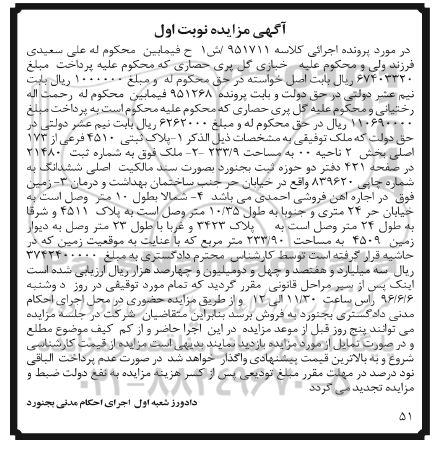 آگهی مزایده نوبت اول
در مورد پرونده اجرائی کلاسه ۹۵۱۷۱۱ /ش۱ ح فیمابین محکوم له علی سعیدی
فرزند ولی و محکوم علیه خبازی گل پری حصاری که محکوم علیه پرداخت مبلغ
۶۷۴۰۳۳۲۰ ریال بابت اصل خواسته در حق محکوم له و مبلغ ۱۰۰۰۰۰۰ ریال بابت
نیم عشر دولتی در حق دولت و بابت پرونده ۹۵۱۲۶۸ فیمابین محکوم له رحمت اله
رختیانی و محکوم علیه گل پری حصاری که محکوم علیه محکوم است به پرداخت مبلغ
۱۱۰۶۹۰۰۰۰ ریال در حق محکوم له و مبلغ ۶۲۶۲۰۰۰ ریال بابت نیم عشر دولتی در
حق دولت که ملک توقیفی به مشخصات ذیل الذکر ۱-پلاک ثبتی ۴۵۱۰ فرعی از ۱۷۳
اصلی بخش ۲ ناحیه ۰۰ به مساحت ۲۳۳/۹ -۲- ملک فوق به شماره ثبت ۲۱۴۸۰
در صفحه ۴۲۱ دفتر دو حوزه ثبت بجنورد بصورت سند مالکیت اصلی ششدانگ به
شماره چاپی ۸۳۹۶۲۰ واقع در خیابان حر جنب ساختمان بهداشت و درمان ۳- زمین
فوق در اجاره آهن فروشی احمدی می باشد ۴- شمالا بطول ۱۰ متر وصل است به
خیابان حر ۲۴ متری و جنوبا به طول ۱۰/۳۵ متر وصل است به پلاک ۴۵۱۱ و شرقا
به طول ۲۴ متر وصل است به پلاک ۳۴۲۳ و غربا با طول ۲۳ متر وصل به دیوار
زمین ۴۵۰۹ به مساحت ۲۳۳/۹۰ متر مربع که با عنایت به موقعیت زمین که در
حاشیه قرار گرفته است توسط کارشناس محترم دادگستری به مبلغ ۳۷۴۲۴۰۰۰۰۰
ریال سه میلیارد و هفتصد و چهل و دومیلیون و چهارصد هزار ریال ارزیابی شده است
اینک پس از سیر مراحل قانونی مقرر گردید که تمام مورد توقیفی در روز دوشنبه
۹۶/۶/۶ راس ساعت ۱۱/۳۰ الی ۱۲ و از طریق مزایده حضوری در محل اجرای احکام
مدنی دادگستری بجنورد به فروش برسد بنابراین متقاضیان شرکت در جلسه مزایده
می توانند پنج روز قبل از موعد مزایده در این اجرا حاضر و از کم کیف موضوع مطلع
و در صورت تمایل از مورد مزایده بازدید نمایند بدیهی است مزایده از قیمت کارشناسی
شروع و به بالاترین قیمت پیشنهادی واگذار خواهد شد در صورت عدم پرداخت الباقی
نود درصد در مهلت مقرر مبلغ تودیعی پس از کسر هزینه مزایده به نفع دولت ضبط و
مزایده تجدید می گردد
دادورز شعبه اول اجرای احکام مدنی بجنورد
۵۱